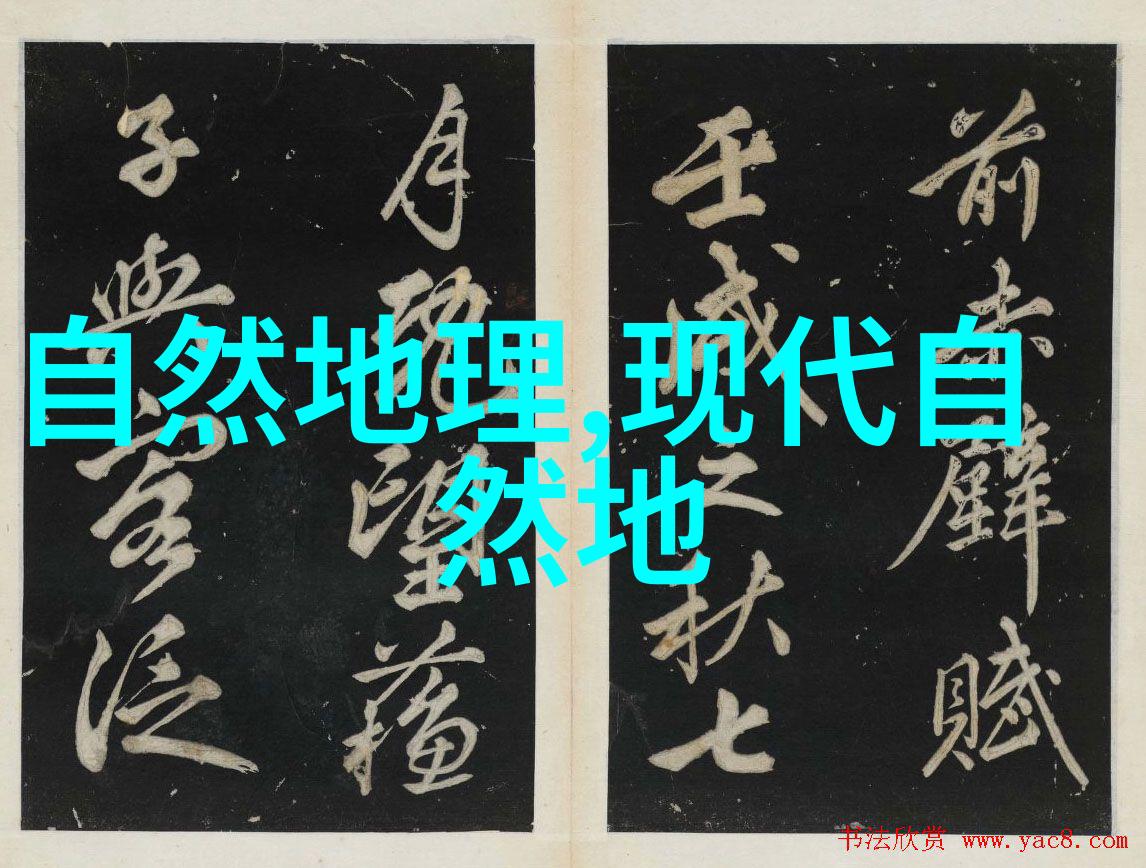 前赤壁賦
壬戌之秋七
月既望蘇
子與客泛
自然地理,现代自
然地
书法欣赏 www.yac8.com